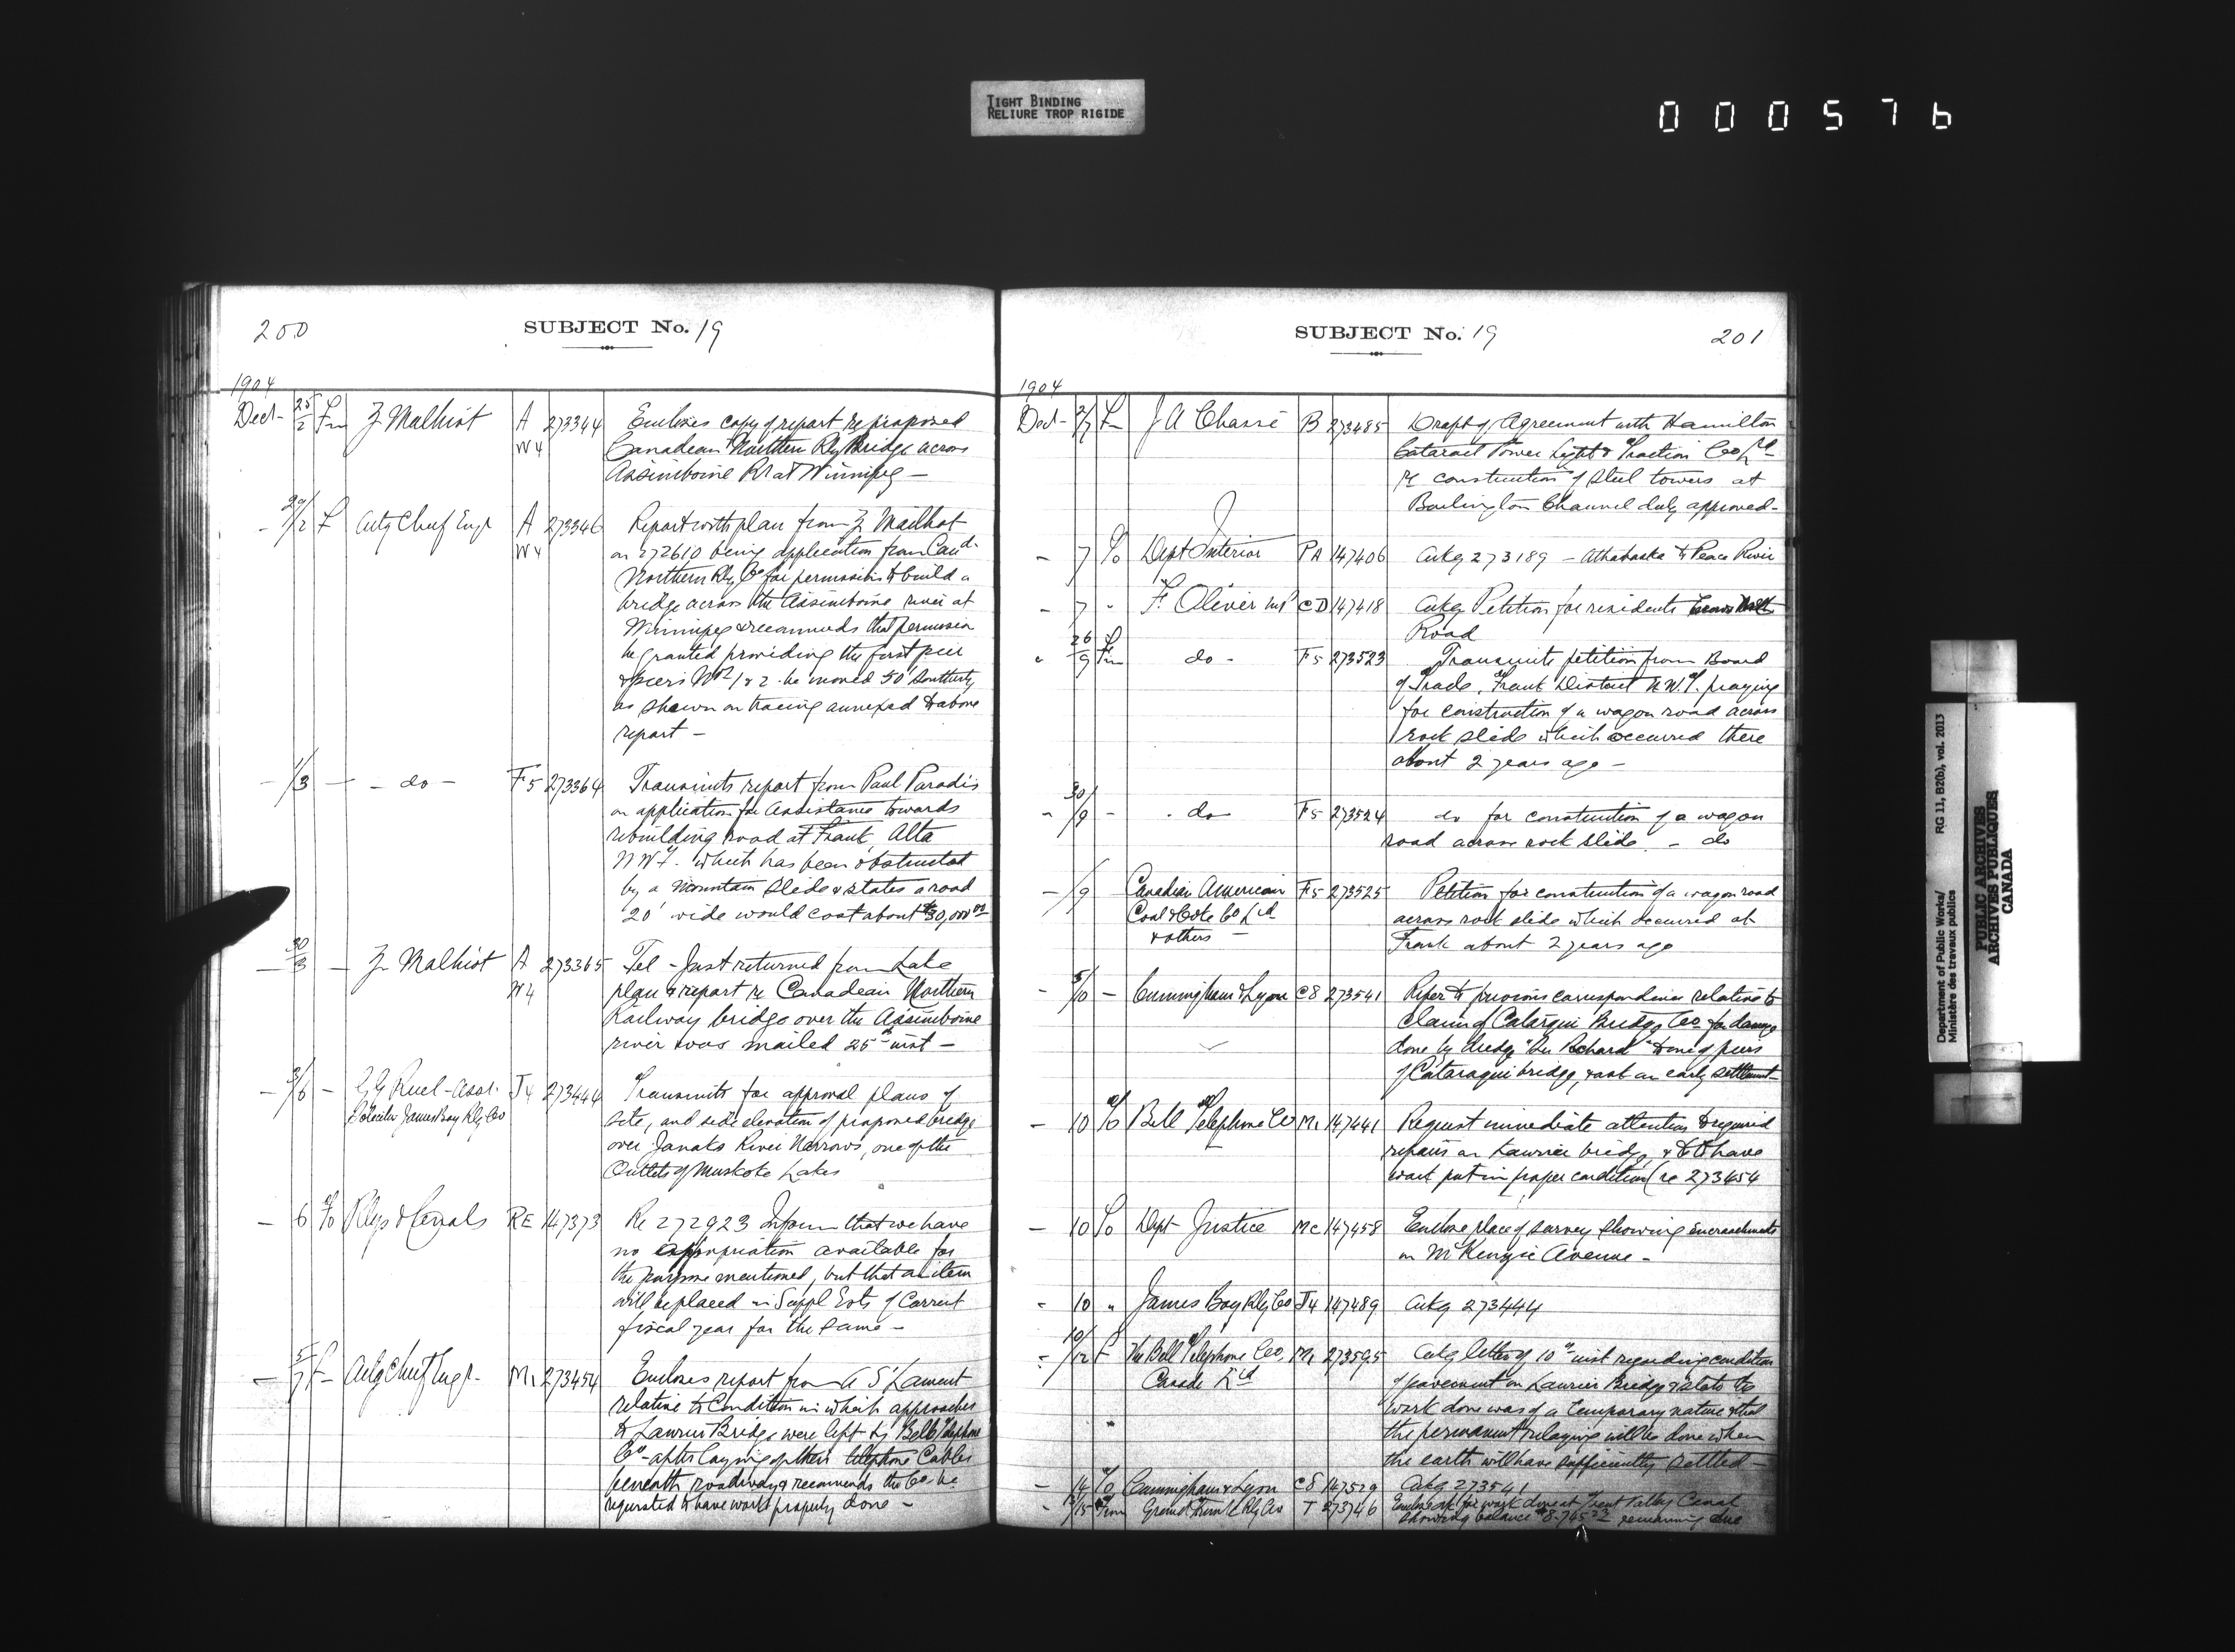 TIGHT BINDING
RELIURE TROP RIGIDE
000576
200
SUBJECT No. 19
1904
Dect- 25/2 Fm Z Malhiot A W4 273344 Encloses copy of report re proposed
Canadian Northern Rly Bridge across
Assiniboine Rr at Winnipeg —
- 29/2 F Actg Chief Engr A W4 273346 Report with plan from Z Mailhot
on 272610 being application from Cand.
Northern Rly Co for permission to build a
bridge across the Assiniboine river at
Winnipeg & recommends that permission
be granted providing the first pier
& piers Nos 1 & 2 be moved 50' Southerly
as shewn on tracing annexed to above
report —
- 1/3 — - do - F5 273364 Transmits report from Paul Paradis
on application for Assistance towards
rebuilding road at Frank, Alta
NWT. which has been obstructed
by a Mountain Slide & states a road
20' wide would cost about $30,000.00
- 30/3 — Z Malhiot A W4 273365 Tel - Just returned from Lake
plan & report re Canadian Northern
Railway bridge over the Assiniboine
river was mailed 25th inst —
- 3/6 - G G Ruel - Asst. J4 273444 Transmits for approval plans of
Solicitor James Bay Rly Co site, and side elevation of proposed bridge
over River Narrows, one of the
Outlets of Muskoka Lakes
- 6 To Rlys & Canals RE 147373 Re 272923 Inform that we have
no appropriation available for
the purpose mentioned, but that an item
will be placed in Suppl Ests of Current
fiscal year for the same —
- 5/7 F Actg Chief Engr. M1 273454 Encloses report from A S Lament
relative to Condition in which approaches
to Laurier Bridge were left by Bell Telephone
Co - after laying of their telephone Cables
beneath roadway & recommends the Co. be
requested to have work properly done —
SUBJECT No. 19
201
1904
Dect- 2/7 Fm J A Chassé B 273485 Draft of Agreement with Hamilton
Cataract Power Light & Traction Co Ld
re construction of steel towers at
Burlington Channel duly approved -
- 7 To Dept Interior PA 147406 Ackg 273189 - Athabaska to Peace River
- 7 " F. Oliver MP CD 147418 Ackg Petition for residents
Road
" 26/9 Fm do - F5 273523 Transmits petition from Board
of Trade, Frank District N.W.T. praying
for construction of a wagon road across
rock slide which occurred there
about 2 years ago -
- 30/9 - do F5 273524 do for construction of a wagon
road across rock slide. - do
- /9 Canadian American F5 273525 Petition for construction of a wagon road
Coal & Coke Co Ld across rock slide which occurred at
& others — Frank about 2 years ago
- 5/10 — Cunningham & Lyon C8 273541 Refer to previous correspondence relative to
claim of Cataraqui Bridge Co for damage
done by dredge "Sir Richard" to one of piers
of Cataraqui bridge, & ask an early settlement -
- 10 To Bell Telephone Co M1 147441 Request immediate attention to required
repairs on Laurier bridge, & to have
work put in proper condition (re 273454
- 10 To Dept Justice Mc 147458 Enclose place of survey showing encroachments
on McKenzie Avenue -
- 10 " James Bay Rly Co J4 147489 Ackg 273444
- 10/12 F The Bell Telephone Co, M1 273595 Ackg letter of 10th inst regarding condition
Canada Ld of pavement on Laurier Bridge & state the
work done was of a temporary nature & that
the permanent relaying will be done when
the earth will have sufficiently settled —
- 14 To Cunningham & Lyon C8 147529 Ackg 273541
- /15 From Grand Trunk Rly Co T 273746 Enclose a/c for work done at Trent Valley Canal
showing balance $8.745 remaining due
Department of Public Works/
Ministère des travaux publics
RG 11, B2(b), vol. 2013
PUBLIC ARCHIVES
ARCHIVES PUBLIQUES
CANADA